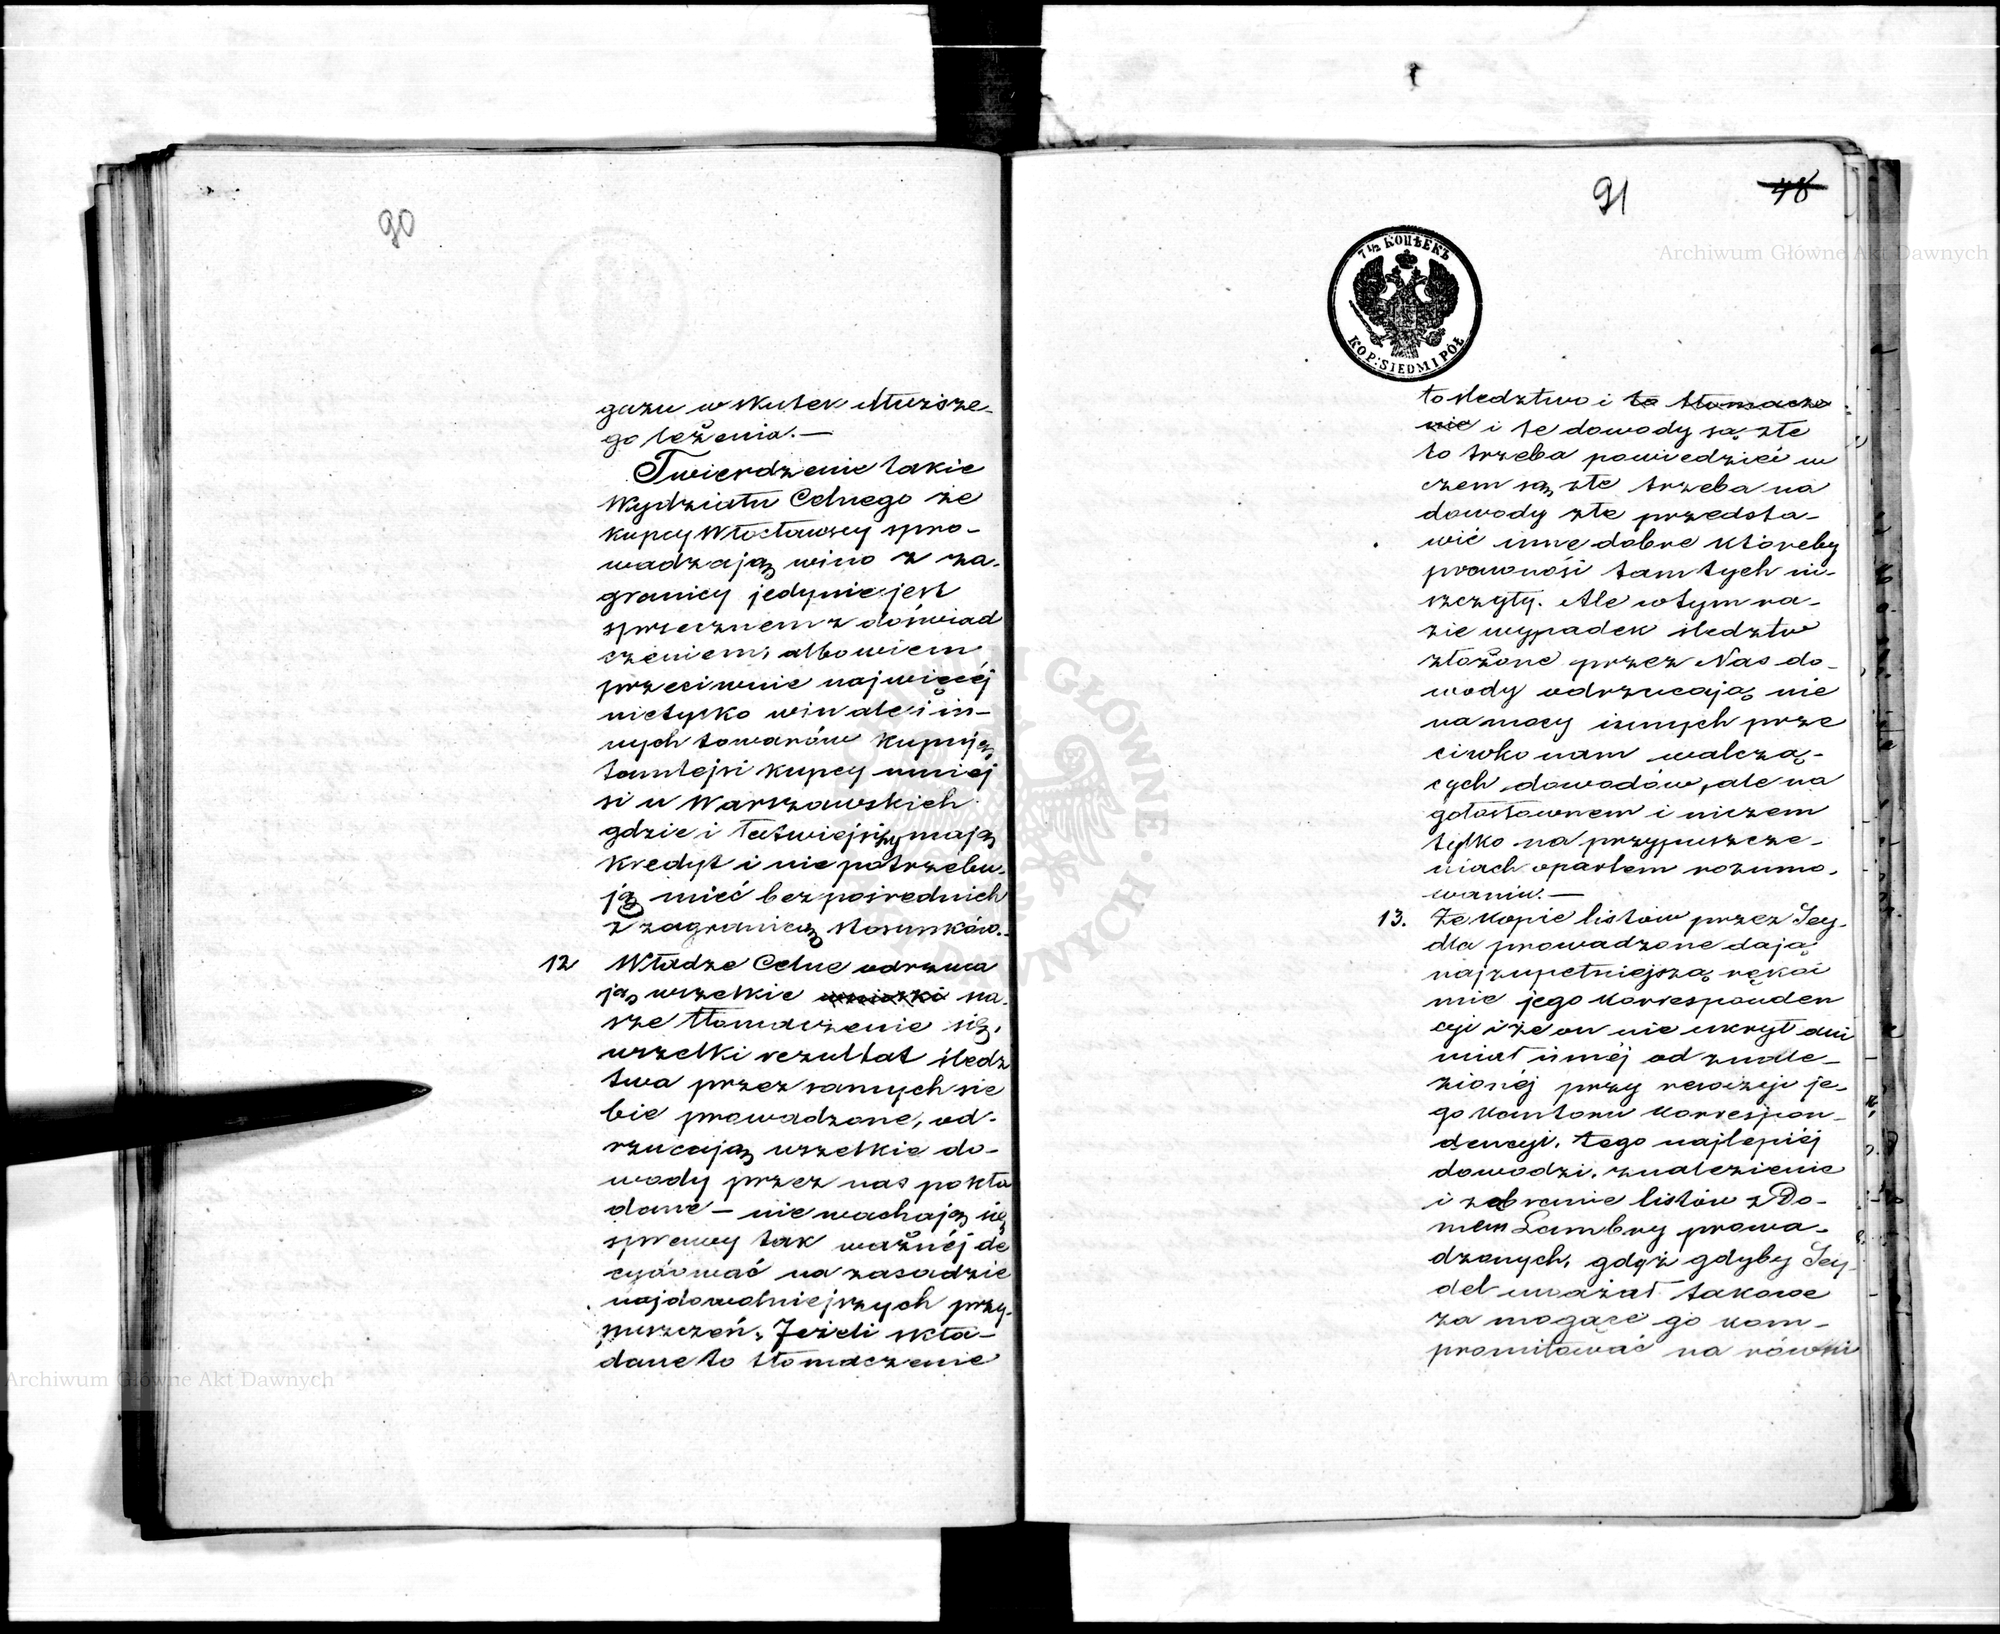 90
gazu w skutek dłuższe-
go leżenia. —
Twierdzenie takie
Wydziału Celnego że
kupcy Włocławscy spro-
wadzają wino z za-
granicy jedynie jest
sprzecznem z doświad
czeniem, albowiem
przeciwnie najwięcéj
nietylko win ale i in-
nych towarów kupują
tamtejsi kupcy mniej
si u Warszawskich
gdzie i łatwiejszy mają
kredyt i nie potrzebu-
ją mieć bezpośrednich
z zagranicą stosunków. -
12 Władze Celne odrzuca
ją wszelkie wnioski na-
sze tłomaczenie się,
wszelki rezultat śledz
twa przez samych sie
bie prowadzone, od-
rzucają wszelkie do-
wody przez nas pokła
dane – nie wachają się
sprawy tak ważnéj de
cydować na zasadzie
najdowolniejszych przy-
puszczeń. Jeżeli skła-
dane to tłomaczenie
91 48
7 1/2 КОПѢЕКЪ
KOP: SIEDM I PÓŁ
to śledztwo i to tłomacze
nie i te dowody są złe
to trzeba powiedzieć w
czem są złe trzeba na
dowody złe przedsta-
wić inne dobre któreby
prawność tamtych ni-
szczyły. Ale w tym ra-
zie wypadek śledztw
złożone przez Nas do-
wody odrzucają nie
na mocy innych prze
ciwko nam walczą-
cych dowodów, ale na
gołosłownem i niczem
tylko na przypuszcze-
niach opartem rozumo-
waniu. —
13. Że kopie listów przez Sey-
dla prowadzone dają
najzupełniejszą rękoi
mie jego korresponden
cyi i że on nie ukrył ani
miał innéj od znale-
zionéj przy rewizyi je-
go kantoru korrespon-
dencyi, tego najlepiéj
dowodzi, znalezienie
i zabranie listów z Do-
mem Lambry prowa-
dzonych, gdyż gdyby Sey-
del uważał takowe
za mogące go kom-
promitować na równi
Archiwum Główne Akt Dawnych
Archiwum Główne Akt Dawnych